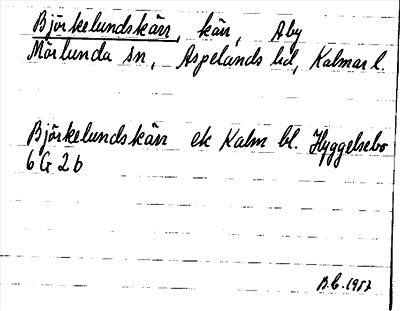 Björkelundskärr, kärr, Åby
Mörlunda sn, Aspelands hd, Kalmar l.
Björkelundskärr ek Kalm bl. Hyggelsebo
6 G 2 b
1957